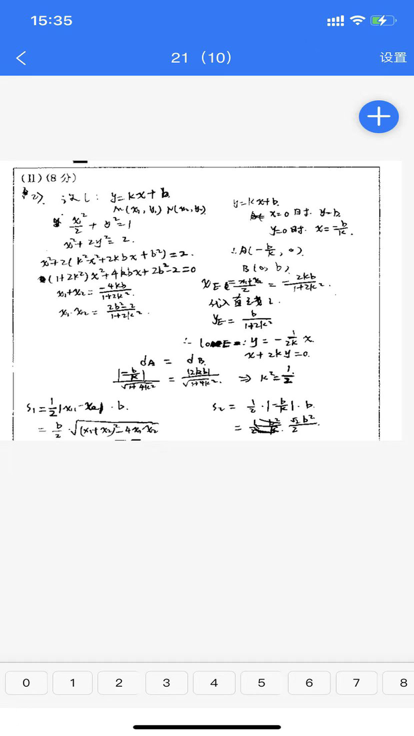 15:35
21 （10）
设置
(II)(8分)
(2). 设l: y=kx+b.
M(x₁, y₁) N(x₂, y₂)
x²/2 + y²=1
x²+2y²=2.
x²+2(k²x²+2kbx+b²)=2.
(1+2k²)x²+4kbx+2b²-2=0
x₁+x₂=-4kb/1+2k².
x₁·x₂=2b²-2/1+2k².
y=kx+b.
x=0时. y=b.
y=0时. x=-b/k.
∴A(-b/k, 0)
B(0, b)
x_E=x₁+x₂/2=-2kb/1+2k².
代入直线l.
y_E=b/1+2k²
∴ l_OE: y=-1/2k x
x+2ky=0.
d_A = d_B
|-b/k|/√1+4k² = |2kb|/√1+4k². ⇒ k²=1/2
S₁=1/2|x₁-x₂|·b.
=b/2·√(x₁+x₂)²-4x₁x₂
S₂=1/2·|-b/k|·b.
=√2b²/2
0 1 2 3 4 5 6 7 8